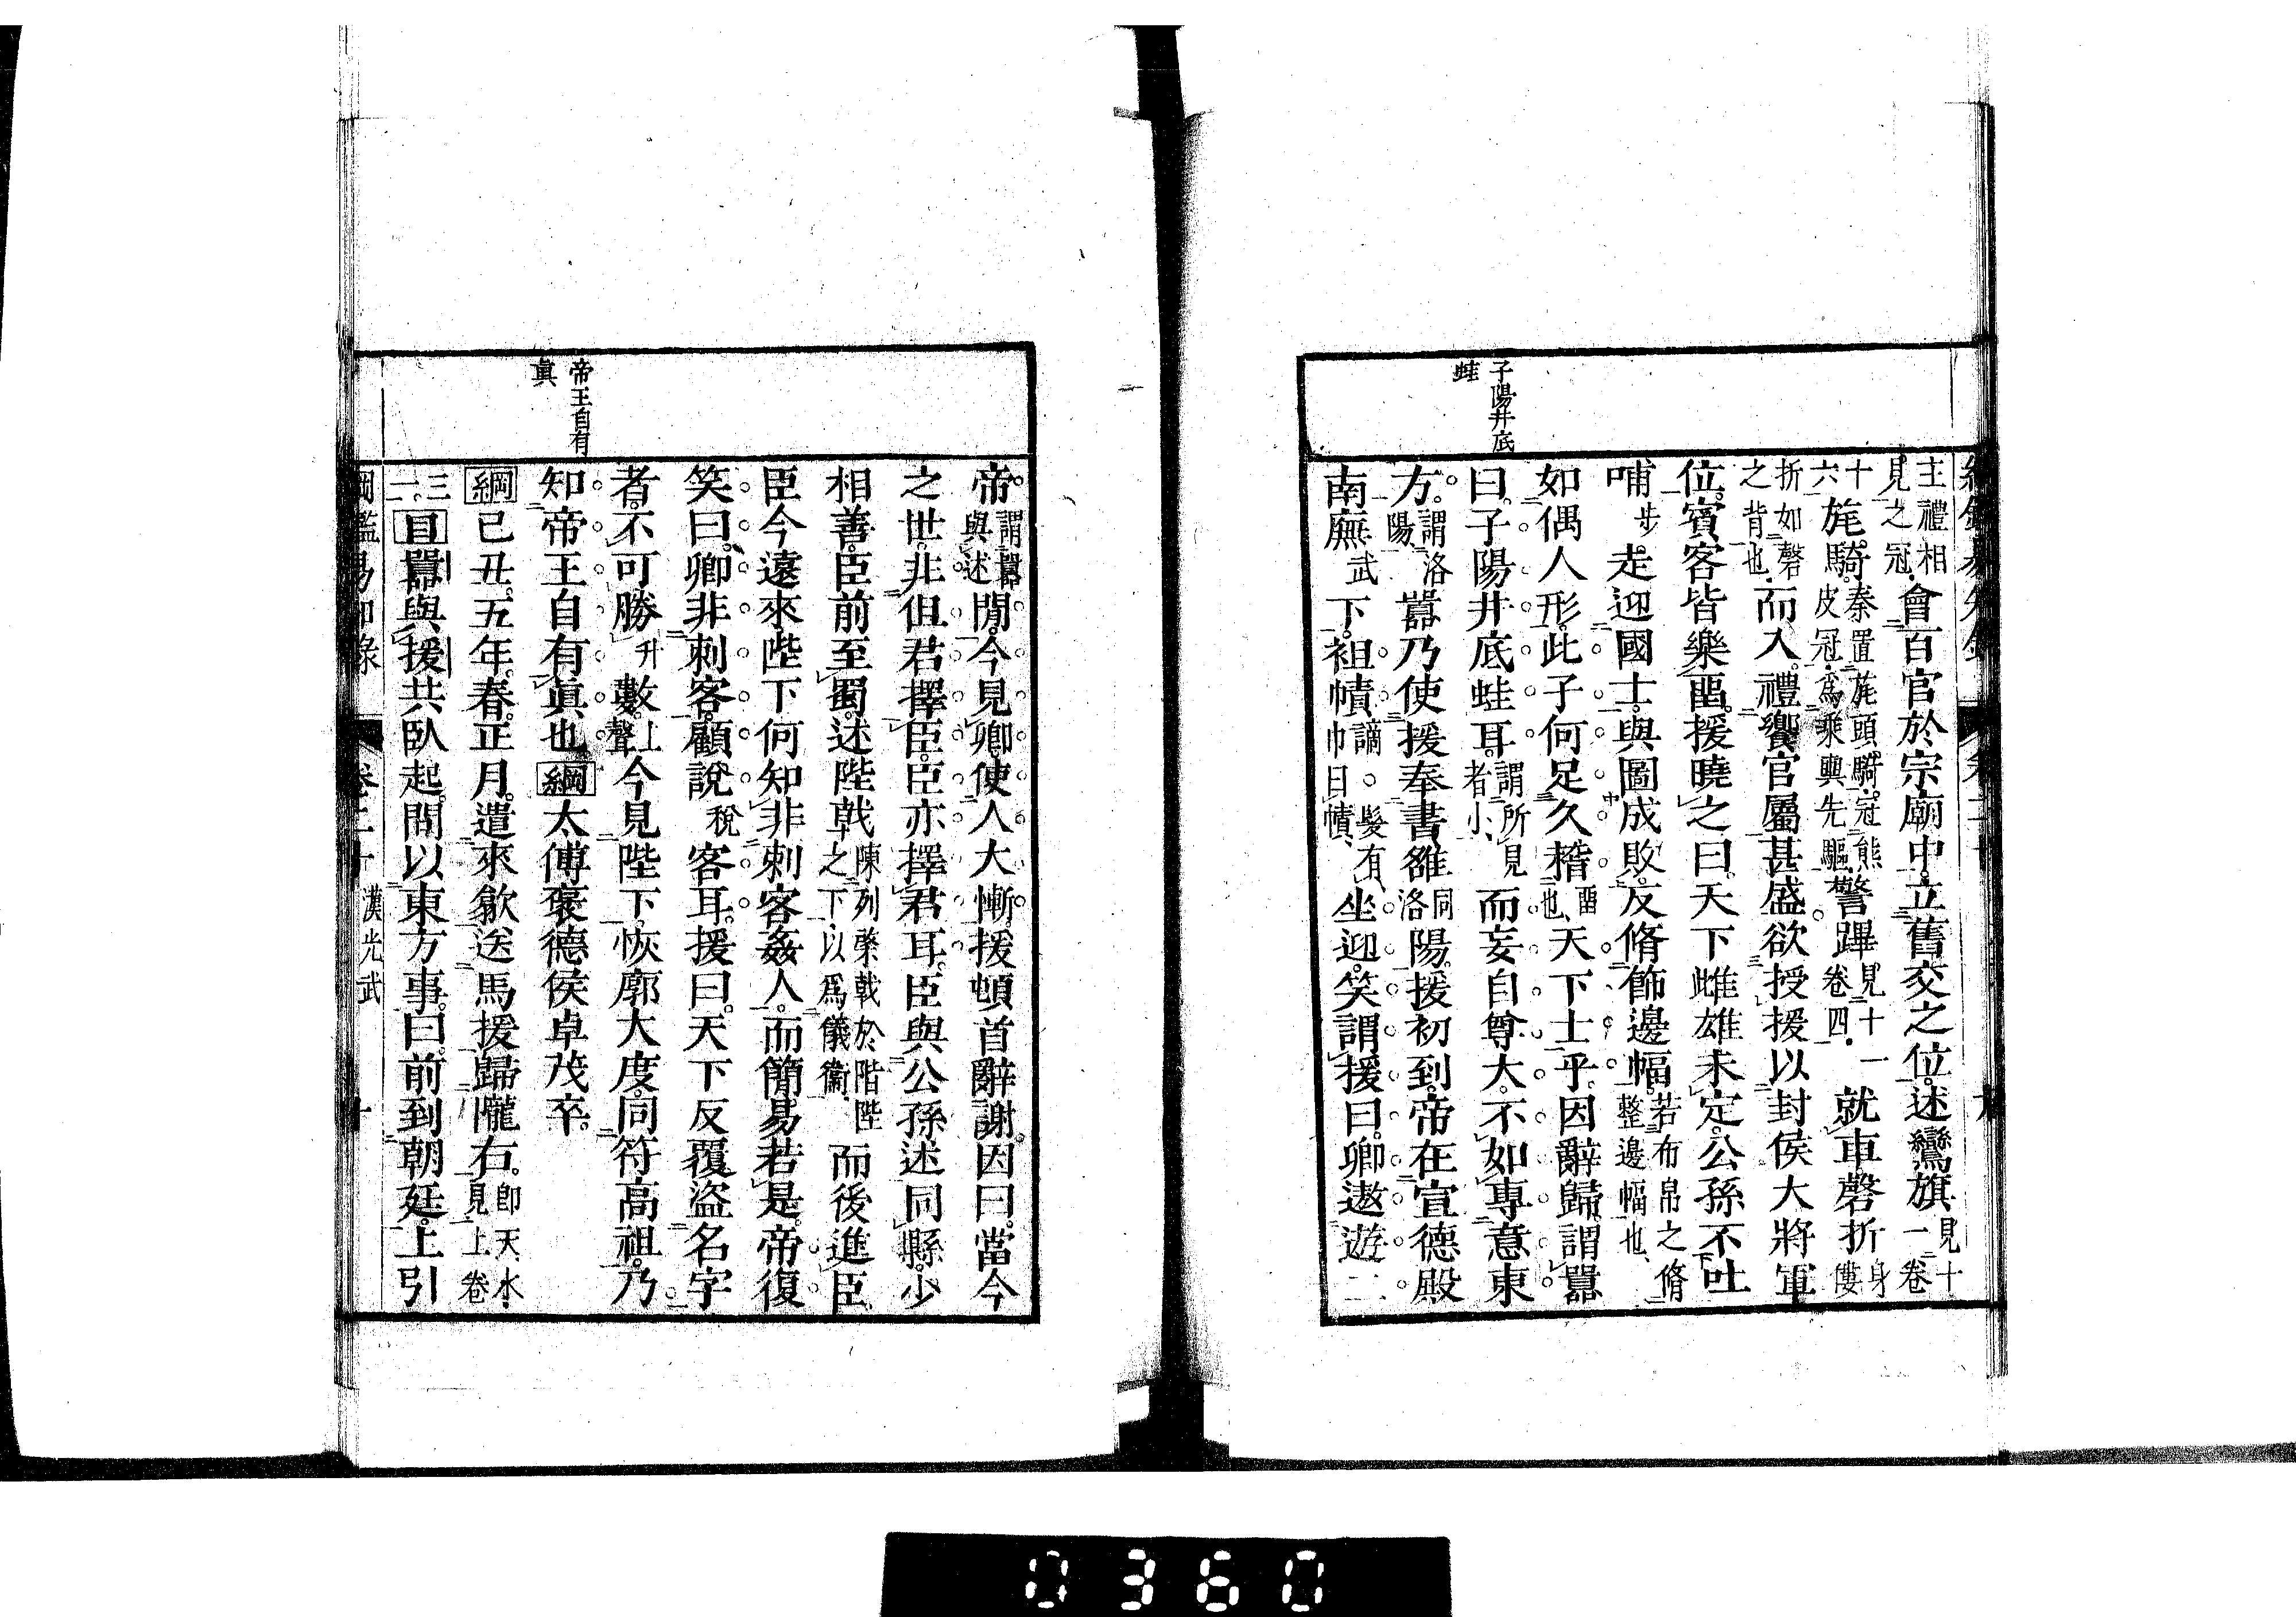 子陽井底
蛙
主禮相見之冠會百官於宗廟中立舊交之位述鸞旗見十一卷
十六旄騎秦置旄頭騎冠熊馬皮冠爲乘輿先驅警蹕見十一卷四就車磬折身僂
折如磬之背也而入禮饗官屬甚盛欲授援以封侯大將軍
位賓客皆樂畱援曉之曰天下雌雄未定公孫不吐
哺步走迎國士與圖成敗反脩飾邊幅若布帛之脩整邊幅也
如偶人形此子何足久稽畱也天下士乎因辭歸謂囂
曰子陽井底蛙耳謂所見者小而妄自尊大不如專意東
方謂洛陽囂乃使援奉書雒同洛陽援初到帝在宣德殿
南廡武下袒幘謫○髮有巾曰幘坐迎笑謂援曰卿遨遊二
帝王自有
眞
帝謂囂與述間今見卿使人大慚援頓首辭謝因曰當今
之世非但君擇臣臣亦擇君耳臣與公孫述同縣少
相善臣前至蜀述陛戟陳列棨戟於階陛之下以爲儀衞而後進臣
臣今遠來陛下何知非刺客姦人而簡易若是帝復
笑曰卿非刺客顧說稅客耳援曰天下反覆盜名字
者不可勝升數上聲今見陛下恢廓大度同符高祖乃
知帝王自有眞也綱太傅褒德侯卓茂卒
綱己丑五年春正月遣來歙送馬援歸隴右卽天水見上卷
三二目囂與援共臥起問以東方事曰前到朝廷上引
綱鑑易知錄 卷二十 漢光武 十